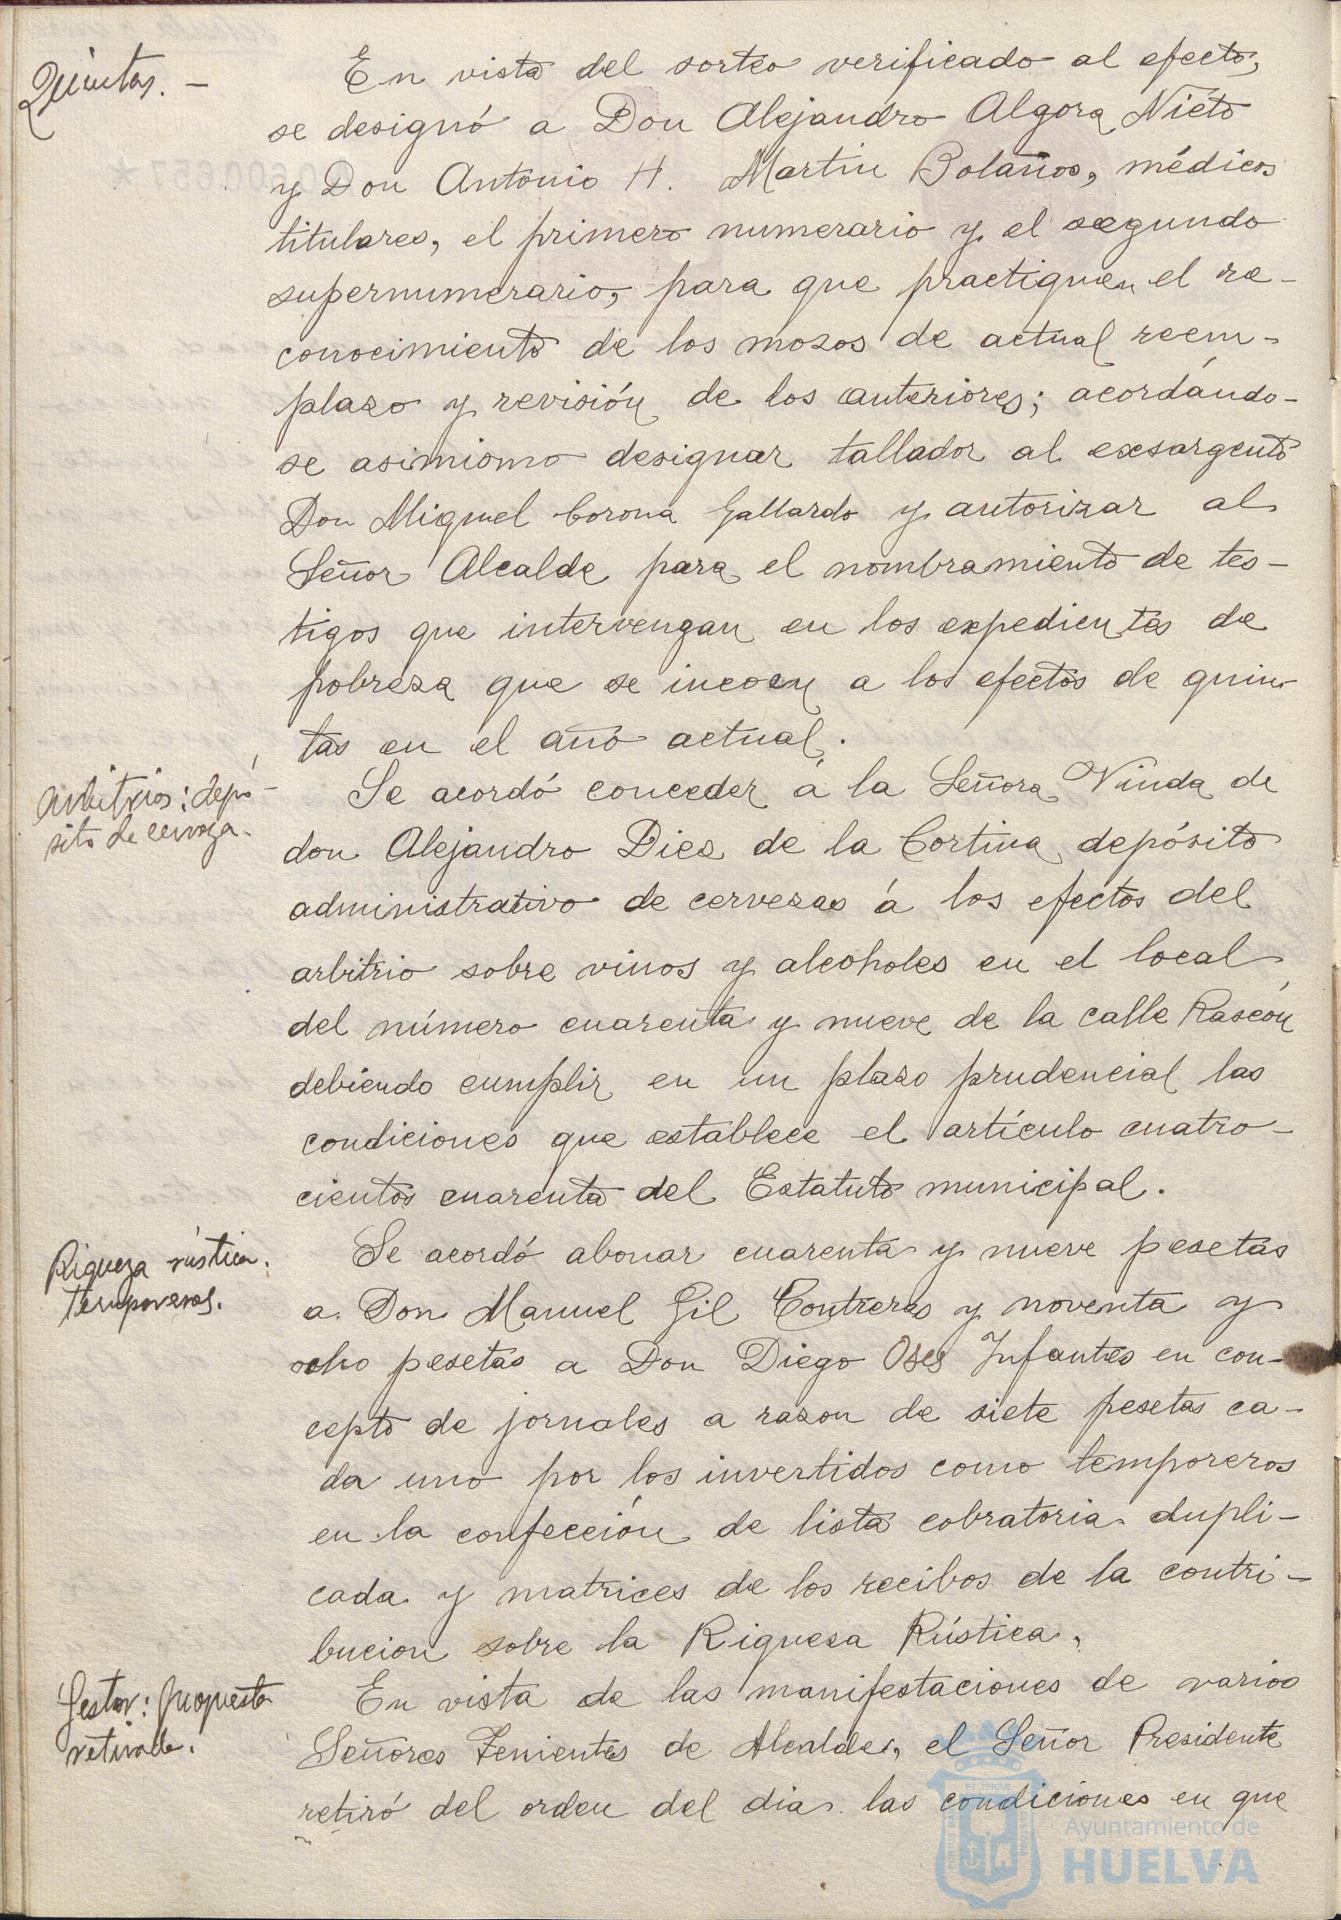 Quintas. –
En vista del sorteo verificado al efecto,
se designó a Don Alejandro Algora Nieto
y Don Antonio H. Martin Bolaños, médicos
titulares, el primero numerario y el segundo
supernumerario, para que practiquen el re-
conocimiento de los mozos de actual reem-
plazo y revisión de los anteriores; acordándo-
se asimismo designar tallador al exsargento
Don Miguel Corona Gallardo y autorizar al
Señor Alcalde para el nombramiento de tes-
tigos que intervengan en los expedientes de
pobreza que se incoen a los efectos de quin-
tas en el año actual.
Arbitrios: depó-
sito de cerveza.
Se acordó conceder á la Señora Viuda de
don Alejandro Diez de la Cortina depósito
administrativo de cervezas á los efectos del
arbitrio sobre vinos y alcoholes en el local
del número cuarenta y nueve de la calle Rascón
debiendo cumplir en un plazo prudencial las
condiciones que establece el artículo cuatro-
cientos cuarenta del Estatuto municipal.
Riqueza rústica.
temporeros.
Se acordó abonar cuarenta y nueve pesetas
a Don Manuel Gil Contreras y noventa y
ocho pesetas a Don Diego Oses Infantes en con-
cepto de jornales a razon de siete pesetas ca-
da uno por los invertidos como temporeros
en la confección de lista cobratoria dupli-
cada y matrices de los recibos de la contri-
bucion sobre la Riqueza Rústica.
Gestor: propuesta
retirada.
En vista de las manifestaciones de varios
Señores Tenientes de Alcalde, el Señor Presidente
retiró del orden del dia las condiciones en que
Ayuntamiento de
HUELVA